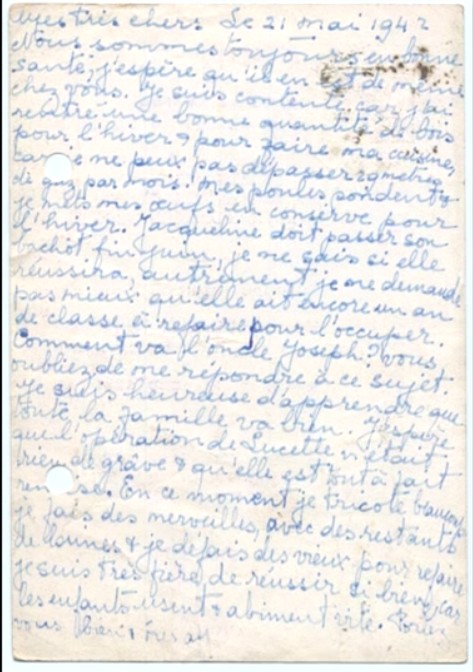 Mes très chers Le 21 mai 1942
Nous sommes toujours en bonne
santé, j'espère qu'il en est de même
chez vous. Je suis contente, car j'ai
rentré une bonne quantité de bois
pour l'hiver & pour faire ma cuisine,
car je ne peux pas dépasser mètres
de gaz par mois. Mes poules pondent &
je mets mes œufs en conserve pour
l'hiver. Jacqueline doit passer son
bachot fin juin, je ne sais si elle
réussira, autrement je ne demande
pas mieux qu'elle ait encore un an
de classe à refaire pour l'occuper.
Comment va l'oncle Joseph? vous
oubliez de me répondre à ce sujet.
Je suis heureuse d'apprendre que
toute la famille va bien. J'espère
que l'opération de Lucette n'était
rien de grâve & qu'elle est tout à fait
En ce moment je tricote beaucoup
je fais des merveilles, avec des restants
de laines & je défais des vieux pour refaire
je suis très fière de réussir si bien, car
les enfants usent & abiment vite.
vous